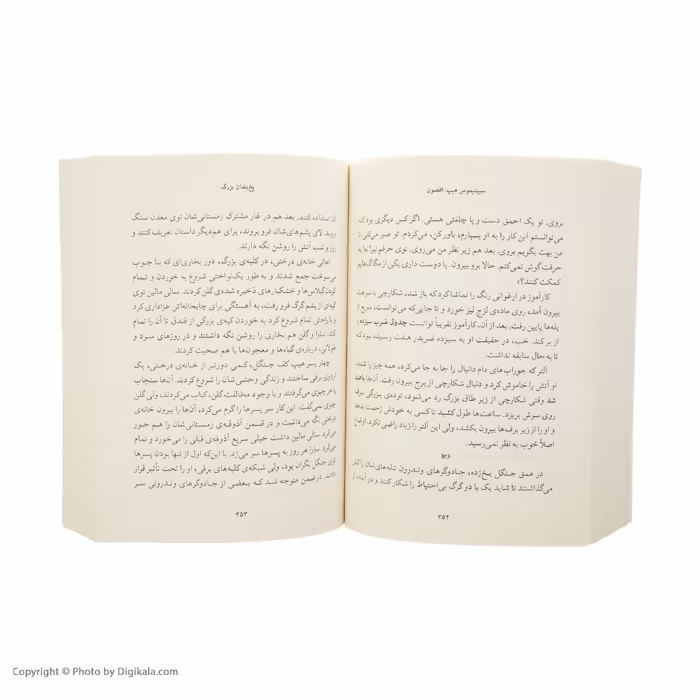 سپتیموس هیپ: افصون
بروی. تو یک احمق دست و پا چلفتی هستی. اگر کس دیگری بود که
می‌توانستم این کار را به او بسپارم، باور کن، می‌کردم. تو صبر می‌کنی تا
من بهت بگویم بروی. بعد هم زیر نظر من می‌روی. توی حرفم نپر! یا به
حرفت گوش نمی‌کنم. حالا برو بیرون. یا دوست داری یکی از مگاگ‌هایم
کمکت کنند؟»
کارآموز در ارغوانی رنگ را تماشا کرد که باز شد. شکارچی با سرعت
بیرون آمد، روی ماده‌ی لزج لیز خورد و تا جایی که می‌توانست، سریع از
پله‌ها پایین رفت. بعد از آن، کارآموز تقریباً توانست جدول ضرب سیزده را
از بر کند. خب، در حقیقت او به سیزده ضربدر هفت رسیده بود که
تا به حال سابقه نداشت.
آلتر که جوراب‌های دام دانیال را جا به جا می‌کرد، همه چیز را شنید.
او آتش را خاموش کرد و دنبال شکارچی از برج بیرون رفت. آن‌جا باعث
شد وقتی شکارچی از زیر طاق بزرگ رد می‌شود، توده‌ی بزرگی برف
روی سرش بریزد. ساعت‌ها طول کشید تا کسی به خودش زحمت بدهد
و او را از زیر برف‌ها بیرون بکشد، ولی این آلتر را زیاد راضی نکرد. اوضاع
اصلاً خوب به نظر نمی‌رسید.
در عمق جنگل یخ‌زده، جادوگرهای وندرون تله‌های‌شان را کنار
می‌گذاشتند تا شاید یک یا دو گرگ بی‌احتیاط را شکار کنند و در آینده از
۳۵۲
یخ‌بندان بزرگ
آن استفاده کنند. بعد هم در غار مشترک زمستانی‌شان توی معدن سنگ
روند، لای پشم‌های‌شان فرو بروند، برای هم‌دیگر داستان تعریف کنند و
روز و شب آتش را روشن نگه دارند.
اهالی خانه‌ی درختی، در کلبه‌ی بزرگ، دور بخاری‌ای که با چوب
می‌سوخت جمع شدند و به طور یک‌نواختی شروع به خوردن و تمام
کردن گیلاس‌ها و خشکبارهای ذخیره شده‌ی گلن کردند. سالی مالین توی
کپه‌ای از پشم گرگ فرو رفت، به آهستگی برای چایخانه‌اش عزاداری کرد
و با راحتی تمام شروع کرد به خوردن کپه‌ی بزرگی از فندق تا آن را تمام
کند. سارا و گلن هم بخاری را روشن نگه داشتند و در روزهای سرد و
طولانی، درباره‌ی گیاه‌ها و معجون‌ها با هم صحبت کردند.
چهار پسر هیپ کف جنگل، کمی دورتر از خانه‌ی درختی، یک
اردوی برفی ساختند و زندگی وحشی‌شان را شروع کردند. آن‌ها سنجاب
یا هر چیزی می‌گرفتند و با وجود مخالفت گلن، کباب می‌کردند، ولی گلن
چیزی نمی‌گفت. این کار سر پسرها را گرم می‌کرد، آن‌ها را بیرون خانه‌ی
درختی نگه می‌داشت و در ضمن آذوقه‌ی زمستانی‌شان را هم جور
می‌کرد. سالی مالین داشت خیلی سریع آذوقه‌ی قبلی را می‌خورد و تمام
می‌کرد. سارا هر روز به پسرها سر می‌زد. با این‌که اول از تنها بودن پسرها
توی جنگل نگران بود، ولی شبکه‌ی کلبه‌های برفی، او را تحت تأثیر قرار
دادند. در ضمن متوجه شد که بعضی از جادوگرهای وندرونی سر
۳۵۳
Copyright © Photo by Digikala.com